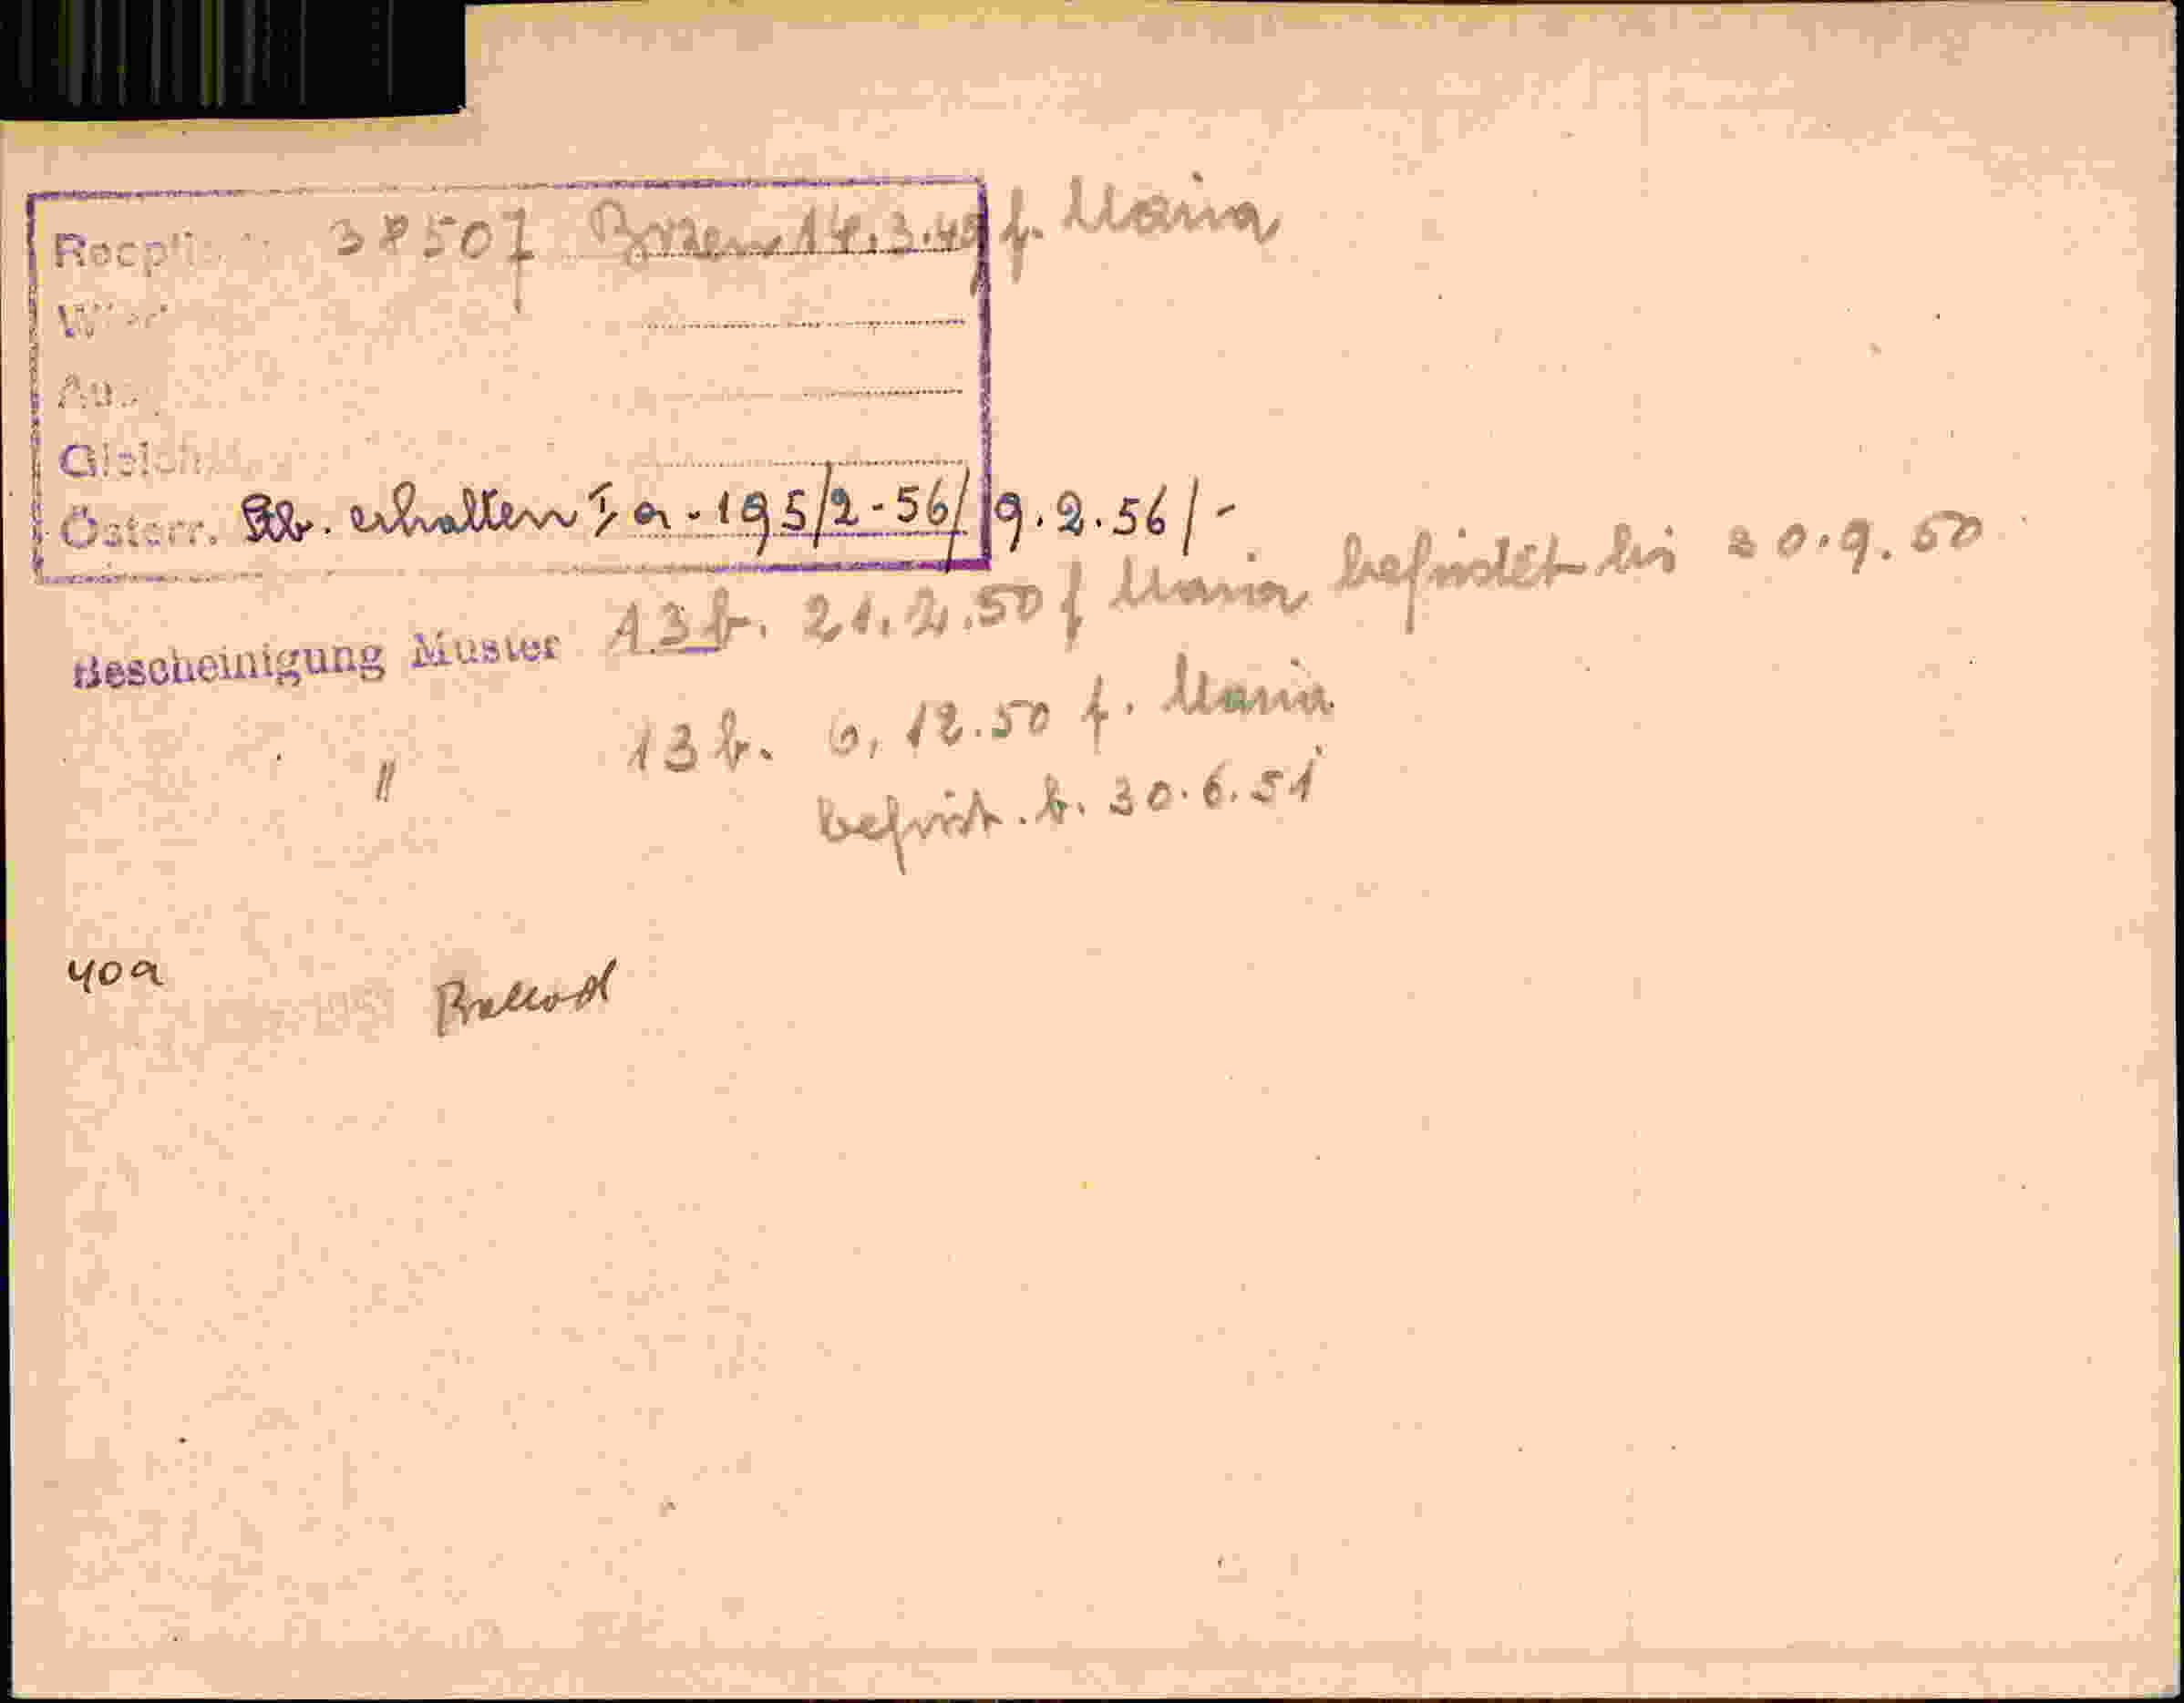 38507 Bozen 14.3.49 f. Maria
Österr. Stb. erhalten I, a - 195/2-56/ 9.2.56/-
Bescheinigung Muster 13b. 21.2.50 f Maria befristet bis 30.9.50
" 13b. 6.12.50 f. Maria
befrist. b. 30.6.51
40a